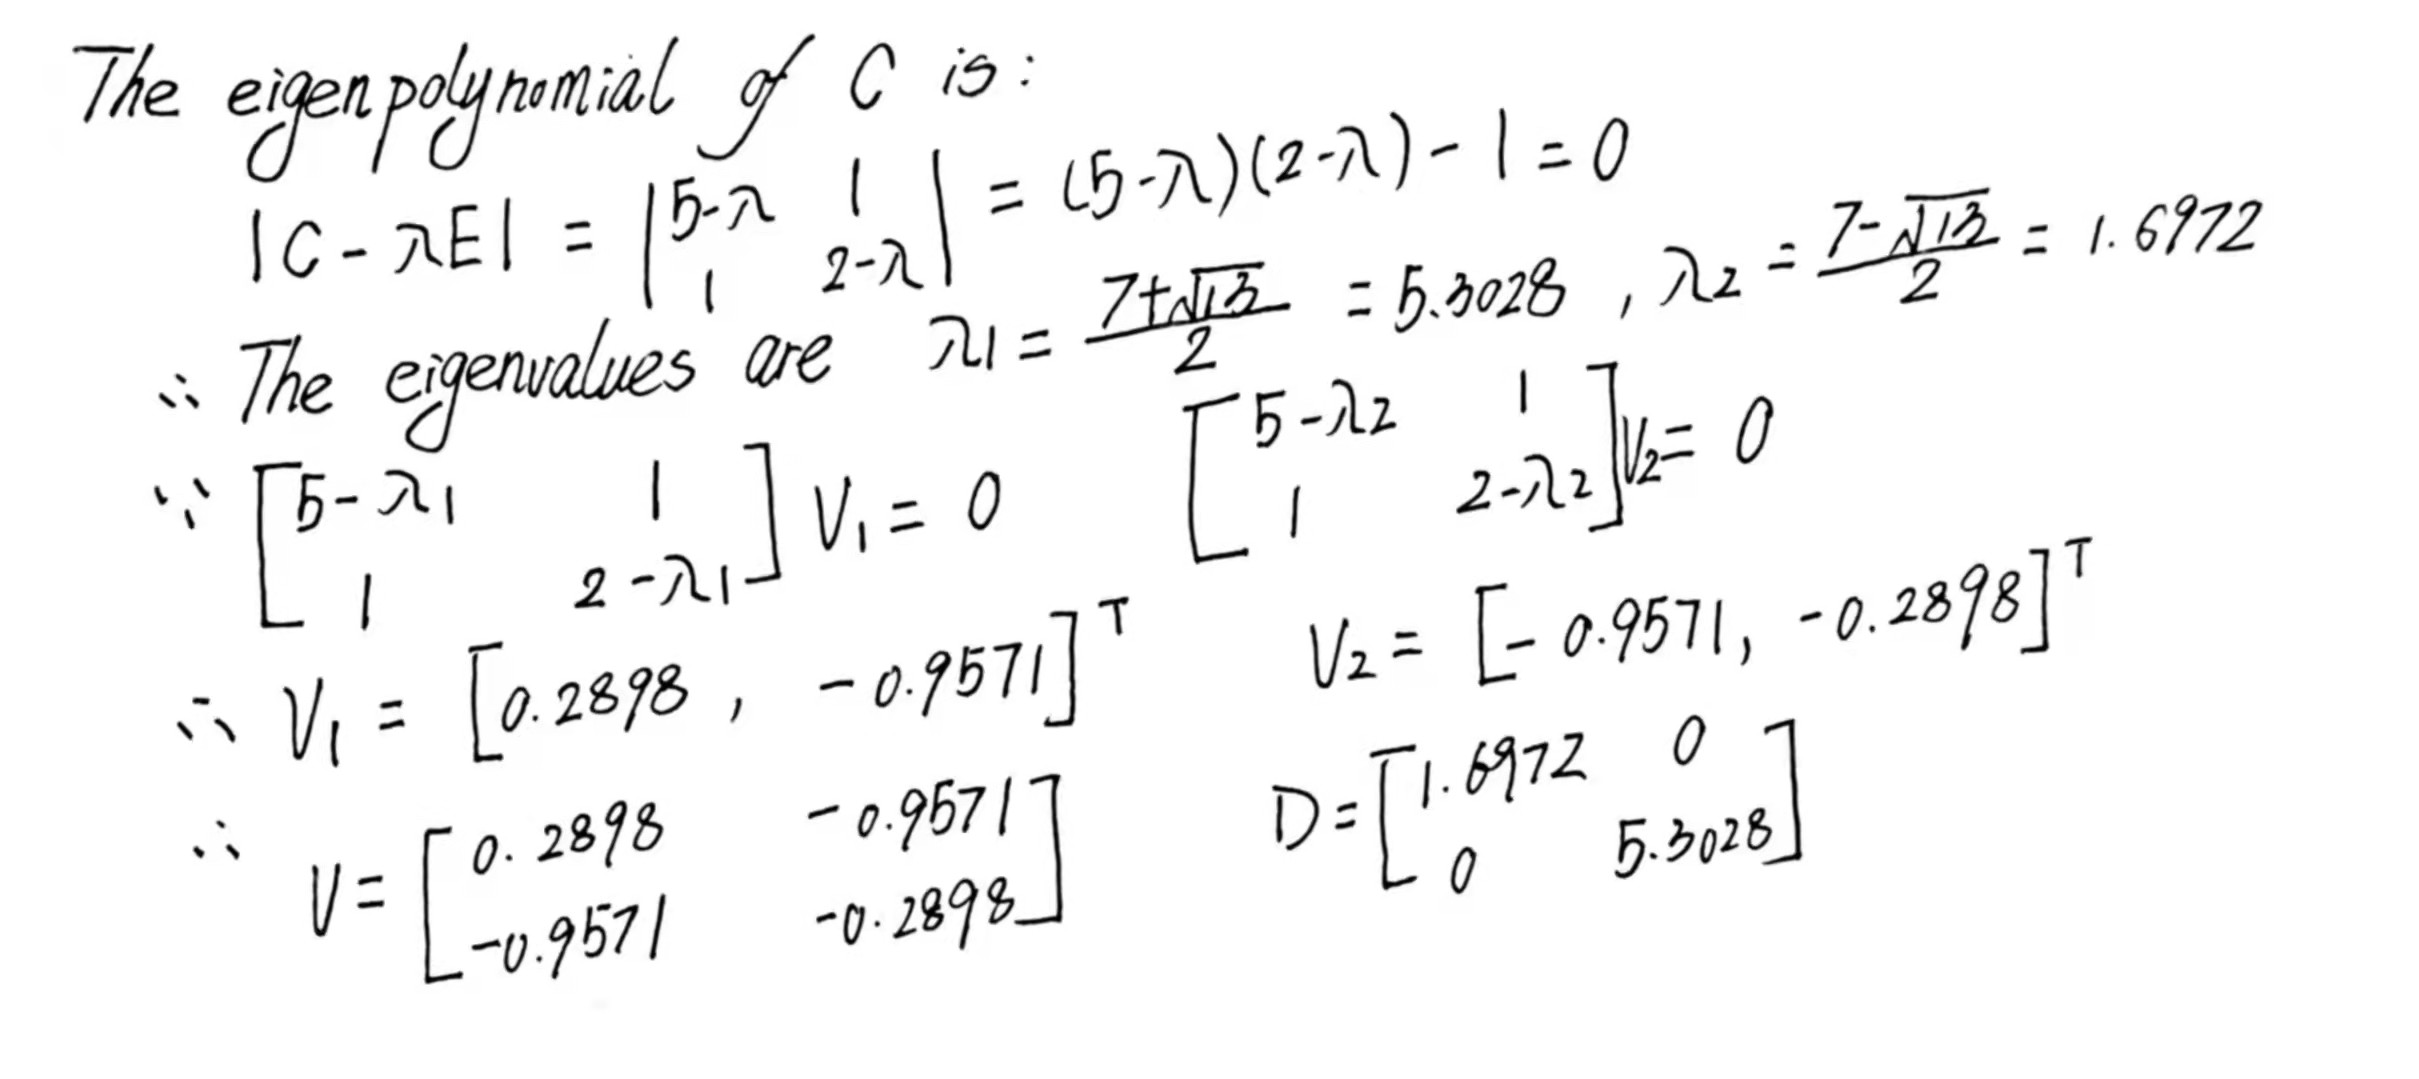 The eigenpolynomial of C is:
|C - λE| = |5-λ 1; 1 2-λ| = (5-λ)(2-λ) - 1 = 0
∴ The eigenvalues are λ1 = (7+√13)/2 = 5.3028 , λ2 = (7-√13)/2 = 1.6972
∵ [5-λ1 1; 1 2-λ1] V1 = 0 [5-λ2 1; 1 2-λ2] V2 = 0
∴ V1 = [0.2898 , -0.9571]^T V2 = [-0.9571, -0.2898]^T
∴ V = [0.2898 -0.9571; -0.9571 -0.2898] D = [1.6972 0; 0 5.3028]